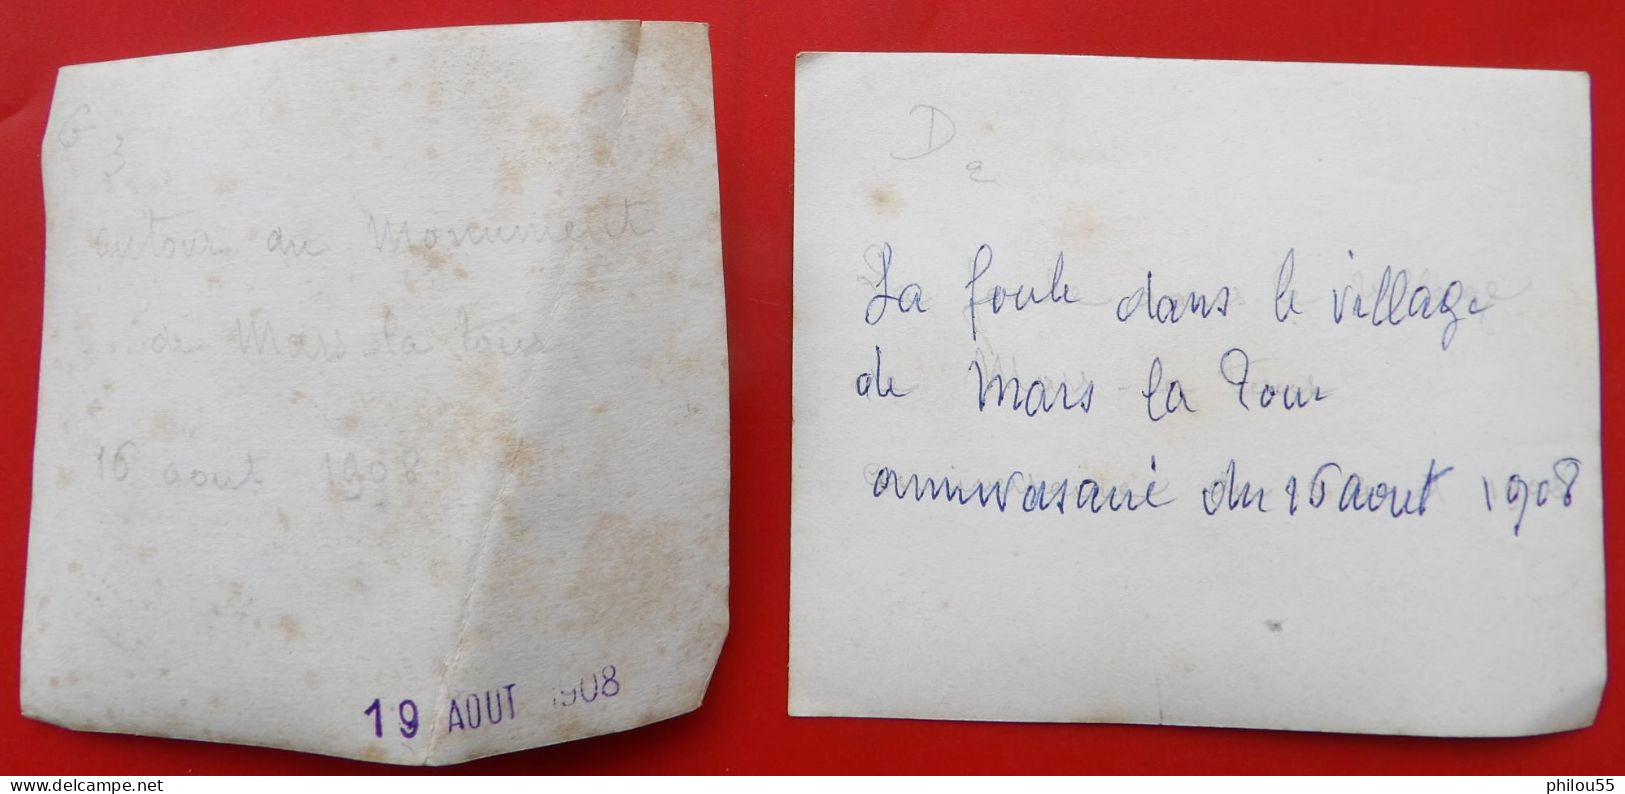 G 3
autour du Monument
de Mars la tour
16 aout 1908
19 AOUT 1908
D 2
La foule dans le village
de Mars la Tour
annivasaire du 16 aout 1908
philou55